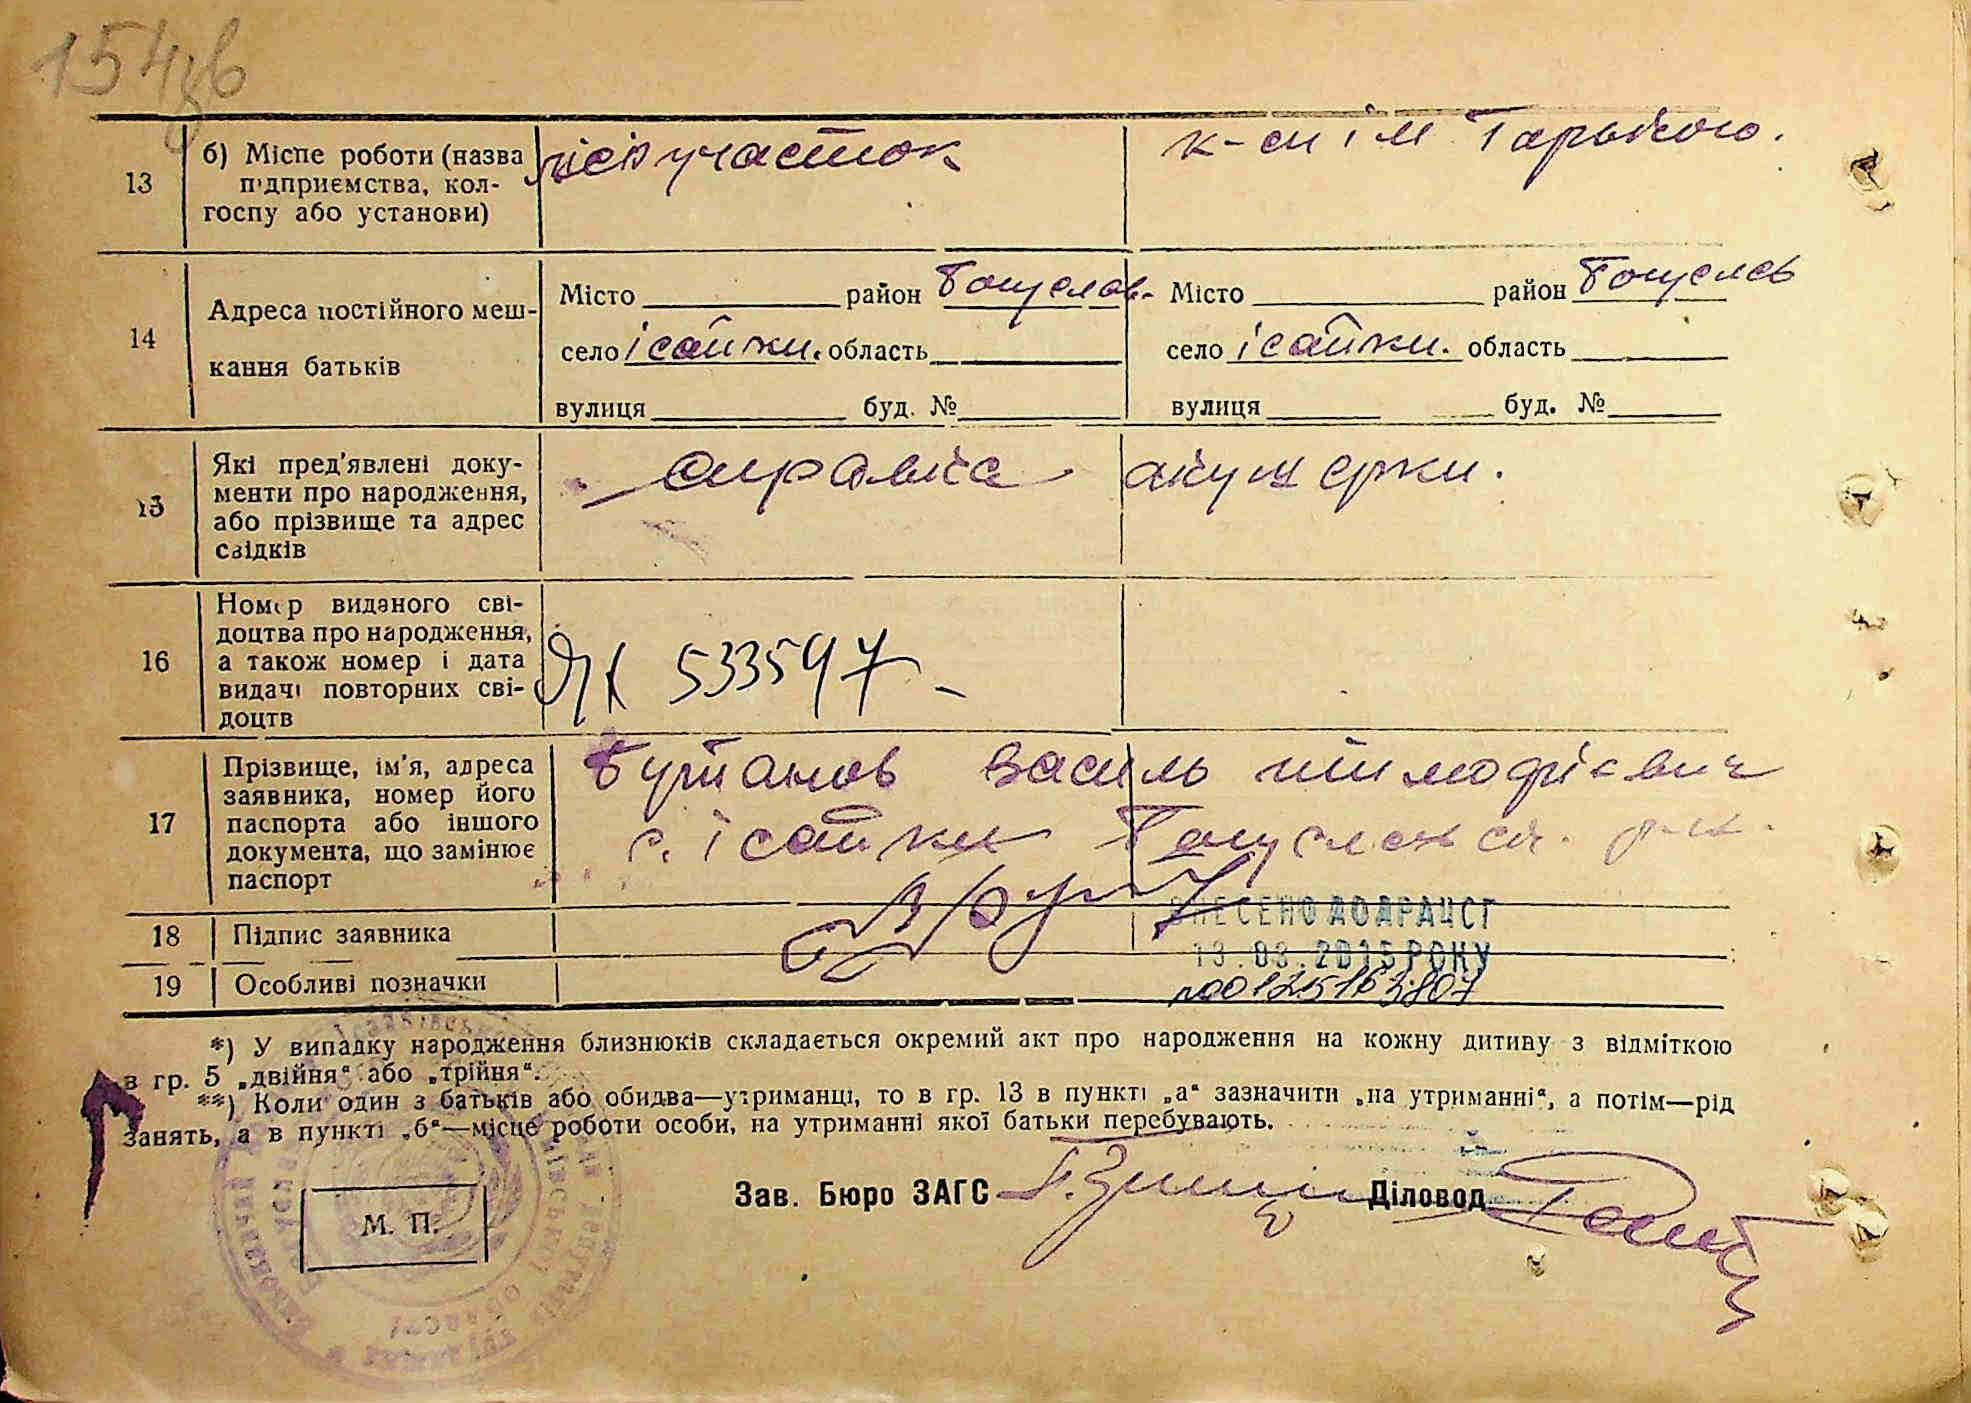 154зв
13
б) Місце роботи (назва
підприємства, кол-
госпу або установи)
лісоучасток
к-сп ім Горького.
14
Адреса постійного меш-
кання батьків
Місто район Богуслав-
село Ісайки. область
вулиця буд. №
Місто район Богуслав
село Ісайки. область
вулиця буд. №
15
Які пред'явлені доку-
менти про народження,
або прізвище та адрес
свідків
справка акушерки.
16
Номер виданого сві-
доцтва про народження,
а також номер і дата
видачі повторних сві-
доцтв
533597
17
Прізвище, ім'я, адреса
заявника, номер його
паспорта або іншого
документа, що замінює
паспорт
Василь Тимофієвич
с. Ісайки Богуславськ. р-н.
18
Підпис заявника
ВНЕСЕНО ДО ДРАЦСГ
13.03.2015 РОКУ
19
Особливі позначки
№00125163807
*) У випадку народження близнюків складається окремий акт про народження на кожну дитину з відміткою
в гр. 5 „двійня“ або „трійня“.
**) Коли один з батьків або обидва—утриманці, то в гр. 13 в пункті „а“ зазначити „на утриманні“, а потім—рід
занять, а в пункті „б“—місце роботи особи, на утриманні якої батьки перебувають.
Зав. Бюро ЗАГС
Діловод
М. П.